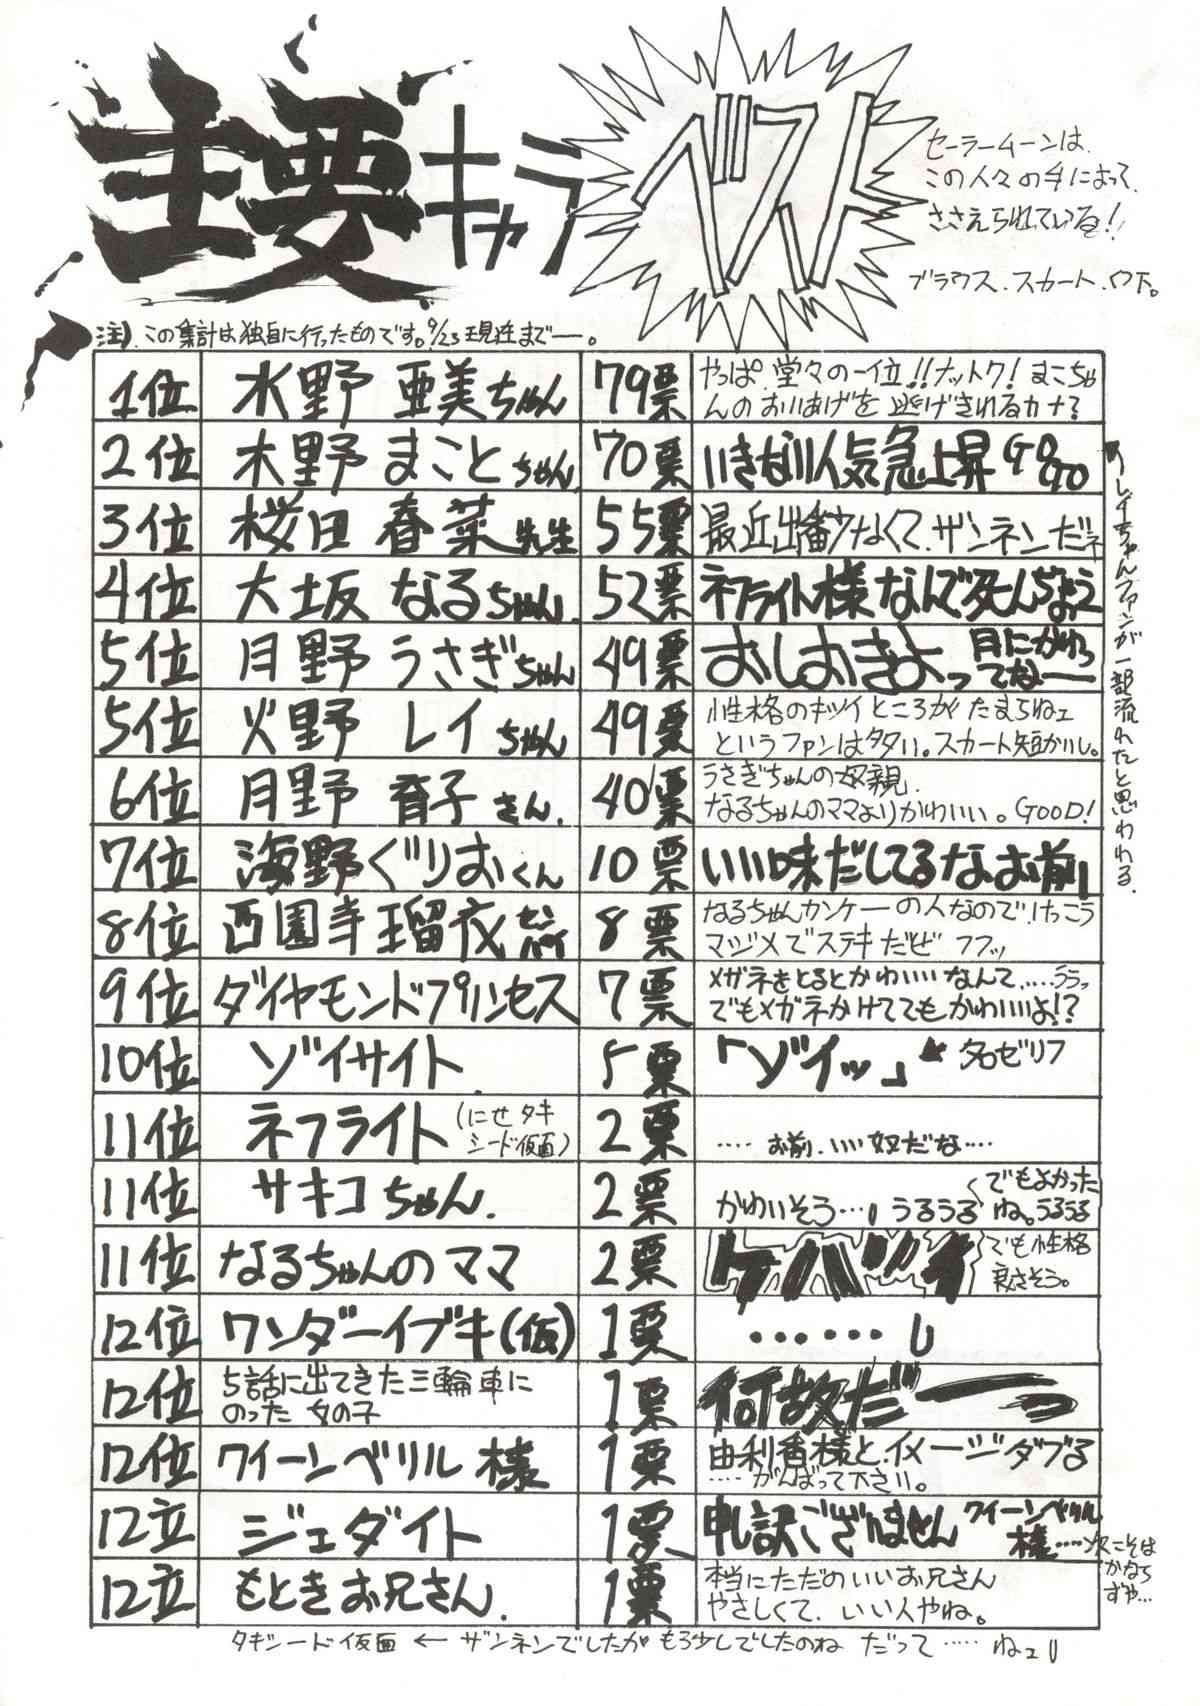 主要キャラ
ベスト
セーラームーンは、
この人々の手によって、
ささえられている!!
ブラウス、スカート、
注)、この集計は独自に行ったものです。9/23現在まで—。
1位 水野 亜美ちゃん 79票 やっぱ、堂々の一位!!ナットク!まこちゃ
んのおいあげを逃げきれるカナ?
2位 木野 まことちゃん 70票 いきなり人気急上昇 GOGO
3位 桜田 春菜先生 55票 最近出番少なくて、ザンネンだネ
4位 大坂 なるちゃん 52票 ネフライト様なんで死んじょう
5位 月野 うさぎちゃん 49票 おしおきよっ 月にかわっ
てねー
5位 火野 レイちゃん 49票 性格のキツイところがたまらねェ
というファンは多い。スカート短かいし。
6位 月野 育子さん 40票 うさぎちゃんの母親、
なるちゃんのママよりかわいい。GOOD!
7位 海野ぐりおくん 10票 いい味だしてるな、お前
8位 西園寺瑠衣センパイ 8票 なるちゃんカンケーの人なので、けっこう
マジメでステキだど フフッ
9位 ダイヤモンドプリンセス 7票 メガネをとるとかわいいなんて、……うぅっ
でもメガネかけててもかわいいよ!?
10位 ゾイサイト 5票 「ゾイッ」 名ゼリフ
11位 ネフライト (にせタキ
シード仮面) 2票 …‥お前、いい奴だな‥‥
11位 サキコちゃん 2票 かわいそう… うるうる でもよかった
ね。うるうる
11位 なるちゃんのママ 2票 ケバツイ でも性格
良さそう。
12位 ワンダーイブキ(仮) 1票 ……
12位 5話に出てきた三輪車に
のった女の子 1票 何故だーっ
12位 クイーンベリル様 1票 由利香様とイメージダブる
……がんばって下さい。
12位 ジェダイト 1票 申し訳ございません クイーンベリル
様…‥次こそは
かなら
ずや…
12位 もときお兄さん 1票 本当にただのいいお兄さん
やさしくて、いい人やね。
レイちゃんファンが一部流れたと思われる。
タキシード仮面 ← ザンネンでしたが もう少しでしたのね だって…… ねェ